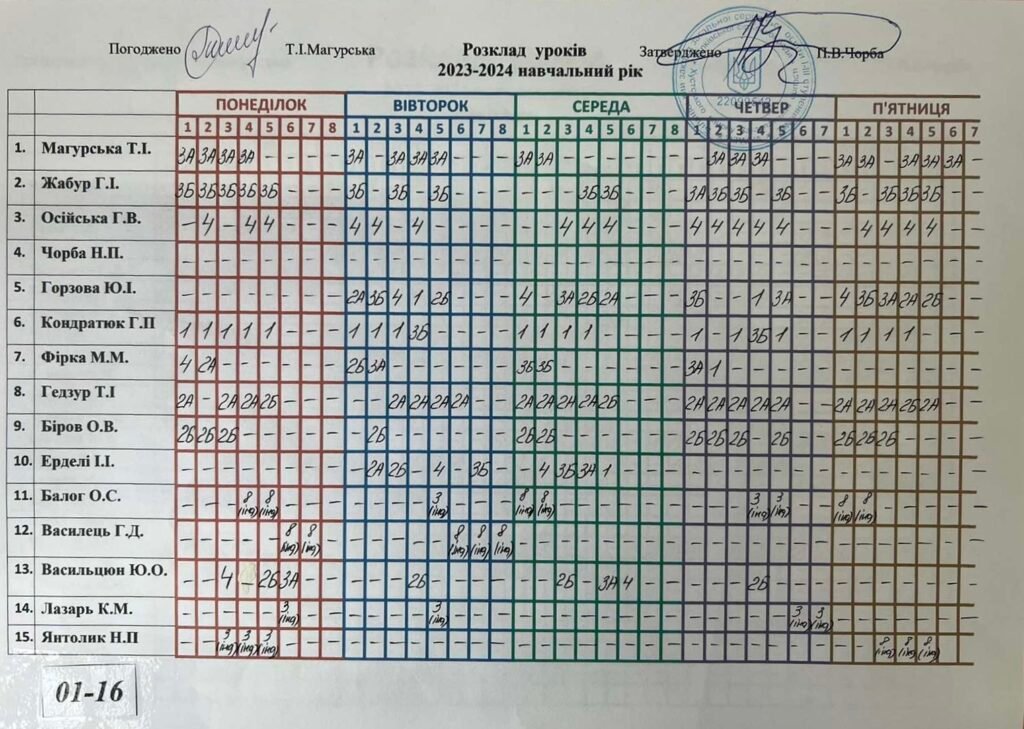 Погоджено Т.І.Магурська Розклад уроків Затверджено П.В.Чорба
2023-2024 навчальний рік
22099642
ПОНЕДІЛОК ВІВТОРОК СЕРЕДА ЧЕТВЕР П'ЯТНИЦЯ
1 2 3 4 5 6 7 8 1 2 3 4 5 6 7 8 1 2 3 4 5 6 7 8 1 2 3 4 5 6 7 1 2 3 4 5 6 7
1. Магурська Т.І. 3А 3А 3А 3А - - - - 3А - 3А 3А 3А - - - 3А 3А - - - - - - - 3А 3А 3А - - - 3А 3А - 3А 3А 3А -
2. Жабур Г.І. 3Б 3Б 3Б 3Б 3Б - - - 3Б - 3Б - 3Б - - - - - - 3Б 3Б - - - 3А 3Б 3Б - 3Б - - 3Б - 3Б 3Б 3Б - -
3. Осійська Г.В. - 4 - 4 4 - - - 4 4 - 4 - - - - - - 4 4 4 - - - 4 4 4 4 4 - - - 4 4 4 4 - -
4. Чорба Н.П. - - - - - - - - - - - - - - - - - - - - - - - - - - - - - - - - - - - - - -
5. Горзова Ю.І. - - - - - - - - 2А 3Б 4 1 2Б - - - 4 - 3А 2Б 2А - - - 3Б - - 1 3А - - 4 3Б 3А 2А 2Б - -
6. Кондратюк Г.П 1 1 1 1 1 - - - 1 1 1 3Б - - - - 1 1 1 1 - - - - 1 - 1 3Б 1 - - 1 1 1 1 - - -
7. Фірка М.М. 4 2А - - - - - - 2Б 3А - - - - - - 3Б 3Б - - - - - - 3А 1 - - - - - - - - - - - -
8. Гедзур Т.І 2А - 2А 2А 2Б - - - - - 2А 2А 2А 2А - - 2А 2А 2А 2А 2Б - - - 2А 2А 2А 2А 2А - - 2А 2А 2А 2Б 2А - -
9. Біров О.В. 2Б 2Б 2Б - - - - - - 2Б - - - - - - 2Б 2Б - - - - - - 2Б 2Б 2Б - 2Б - - 2Б 2Б 2Б - - - -
10. Ерделі І.І. - - - - - - - - - 2А 2Б - 4 - 3Б - - 4 3Б 3А 1 - - - - - - - - - - - - - - - - -
11. Балог О.С. - - - 8 (інд) 8 (інд) - - - - - - - 3 (інд) - - - 8 (інд) 8 (інд) - - - - - - - - - 3 (інд) 3 (інд) - - 8 (інд) 8 (інд) - - - - -
12. Василець Г.Д. - - - - - 8 (інд) 8 (інд) - - - - - - 8 (інд) 8 (інд) 8 (інд) - - - - - - - - - - - - - - - - - - - - - -
13. Васильцюн Ю.О. - - 4 - 2Б 3А - - - - - 2Б - - - - - - 2Б - 3А 4 - - - - - 2Б - - - - - - - - - -
14. Лазарь К.М. - - - - - 3 (інд) - - - - - - 3 (інд) - - - - - - - - - - - - - - - - 3 (інд) 3 (інд) - - - - - - -
15. Янтолик Н.П - - 3 (інд) 3 (інд) 3 (інд) - - - - - - - - - - - - - - - - - - - - - - - - - - - - 8 (інд) 8 (інд) 8 (інд) - -
01-16